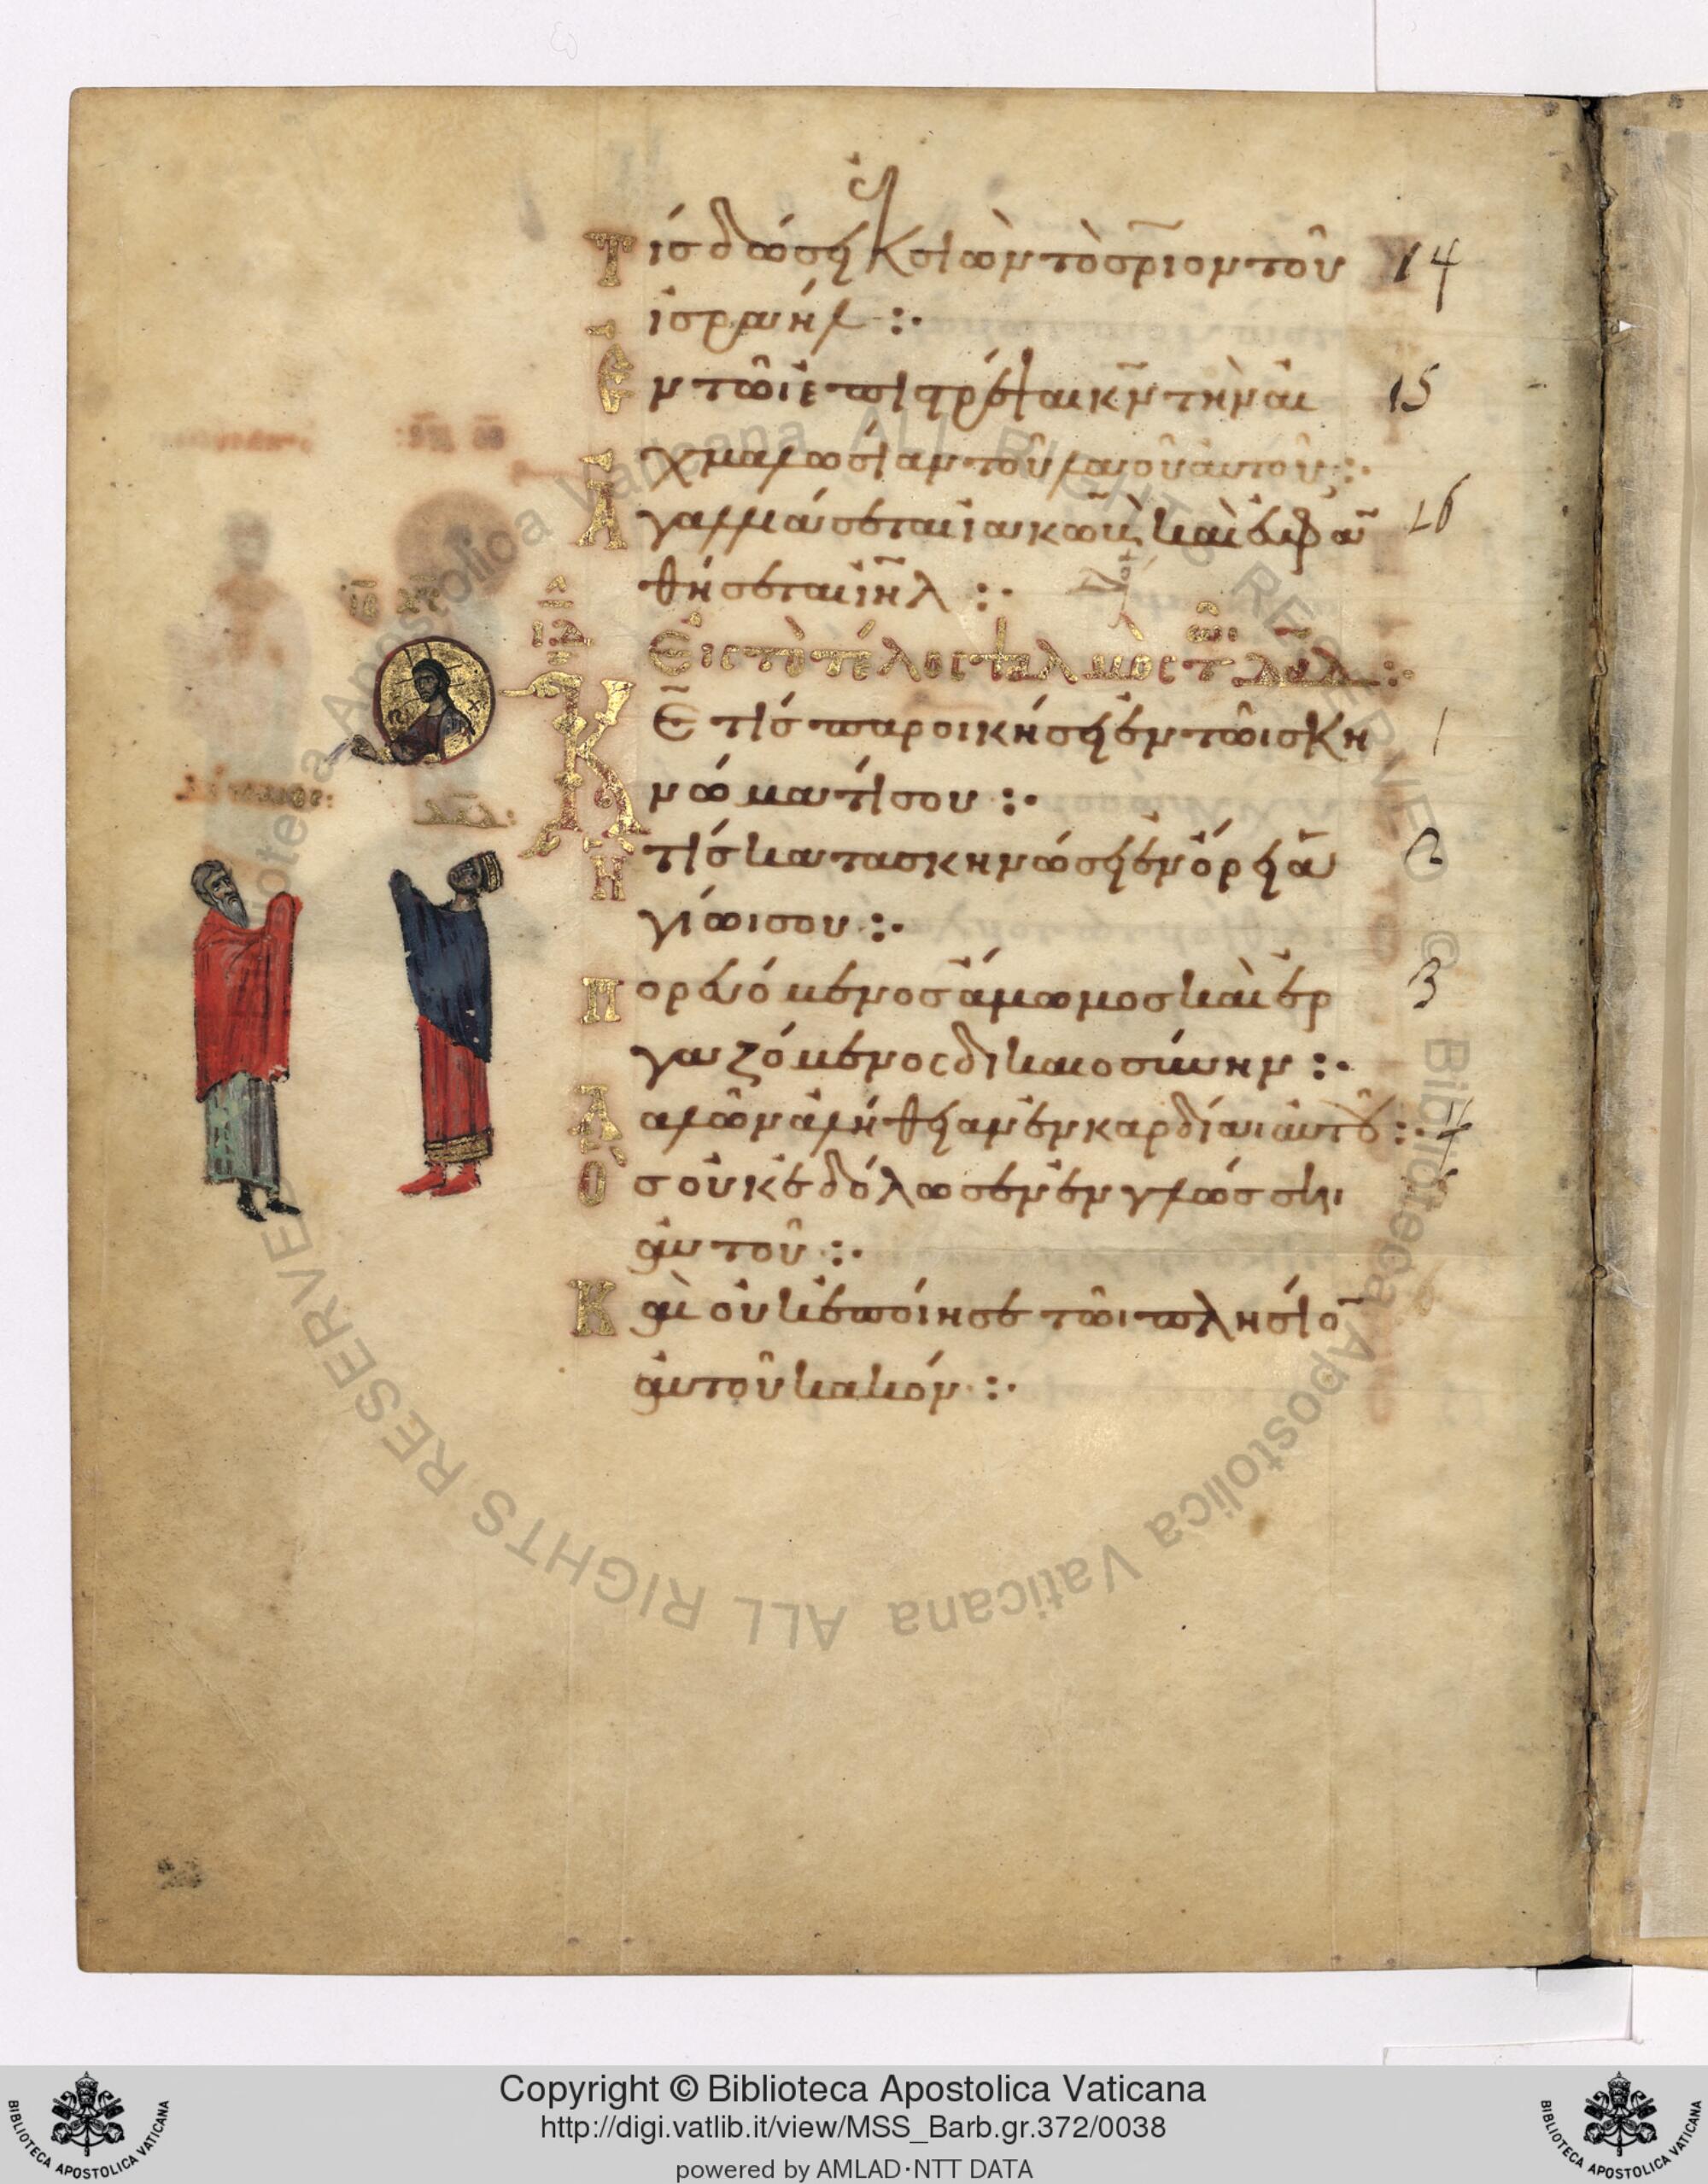 Τίς δώσει ἐκ σιὼν τὸ σ̅ρ̅ιον τοῦ 14
ἰσραήλ :·
Ἐν τῶι ἐπιστρέψαι κ̅ν̅ τὴν αἰ 15
χμαλωσίαν τοῦ λαοῦ αὐτοῦ :·
Ἀγαλλιάσεται ἰακὼβ καὶ εὐφραν 16
θήσεται ἰη̅λ :·
ι̅δ̅
ι̅ς̅ χ̅ς̅
Εἰς τὸ τέλος ψαλμὸς τῶι δα̅δ :·
Κ̅ε̅ τίς παροικήσει ἐν τῶι σκη 1
νώματί σου :·
δα̅δ :·
Ἢ τίς κατασκηνώσει ἐν ὄρει ἁ 2
γίωι σου :·
Πορευόμενος ἄμωμος καὶ ἐρ 3
γαζόμενος δικαιοσύνην :·
Λαλῶν ἀλήθειαν ἐν καρδίαι αὐτοῦ :· 4
Ὃς οὐκ ἐδόλωσεν ἐν γλώσσηι
αὐτοῦ :·
Καὶ οὐκ ἐποίησε τῶι πλησίον
αὐτοῦ κακόν :·
Biblioteca Apostolica Vaticana ALL RIGHTS RESERVED © Biblioteca Apostolica Vaticana ALL RIGHTS RESERVED
Copyright © Biblioteca Apostolica Vaticana
http://digi.vatlib.it/view/MSS_Barb.gr.372/0038
powered by AMLAD·NTT DATA
BIBLIOTECA APOSTOLICA VATICANA
BIBLIOTECA APOSTOLICA VATICANA